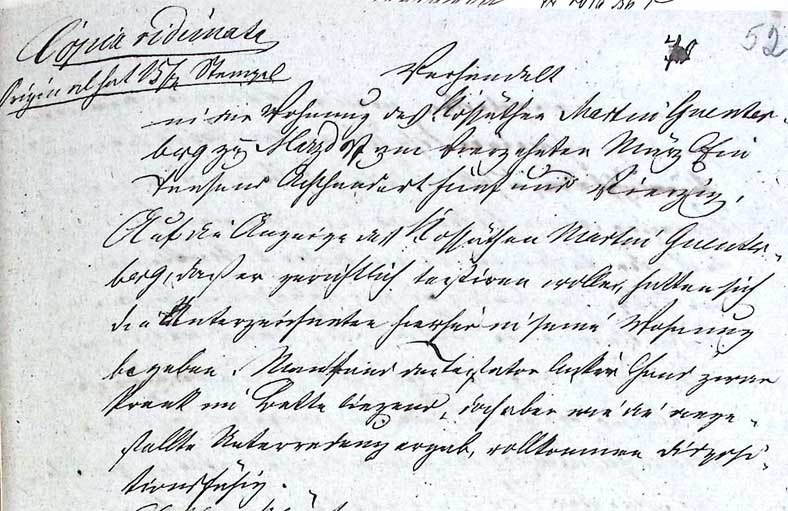 52
Copia vidimata
Original hat 15 Stempel
Verhandelt
in der Wohnung des Kossäthen Martin Guenter-
berg zu Marzdorf am vierzehnten März Ein
Tausend Achthundert fünf und Vierzig.
Auf die Anzeige des Kossäthen Martin Guenter-
berg, daß er gerichtlich testiren wolle, hatten sich
die Unterzeichneten hierher in seine Wohnung
begeben. Man fand den Testator linker Hand zwar
krank im Bette liegend, doch aber wie die ange-
stellte Unterredung ergab, vollkommen disposi-
tionsfähig.